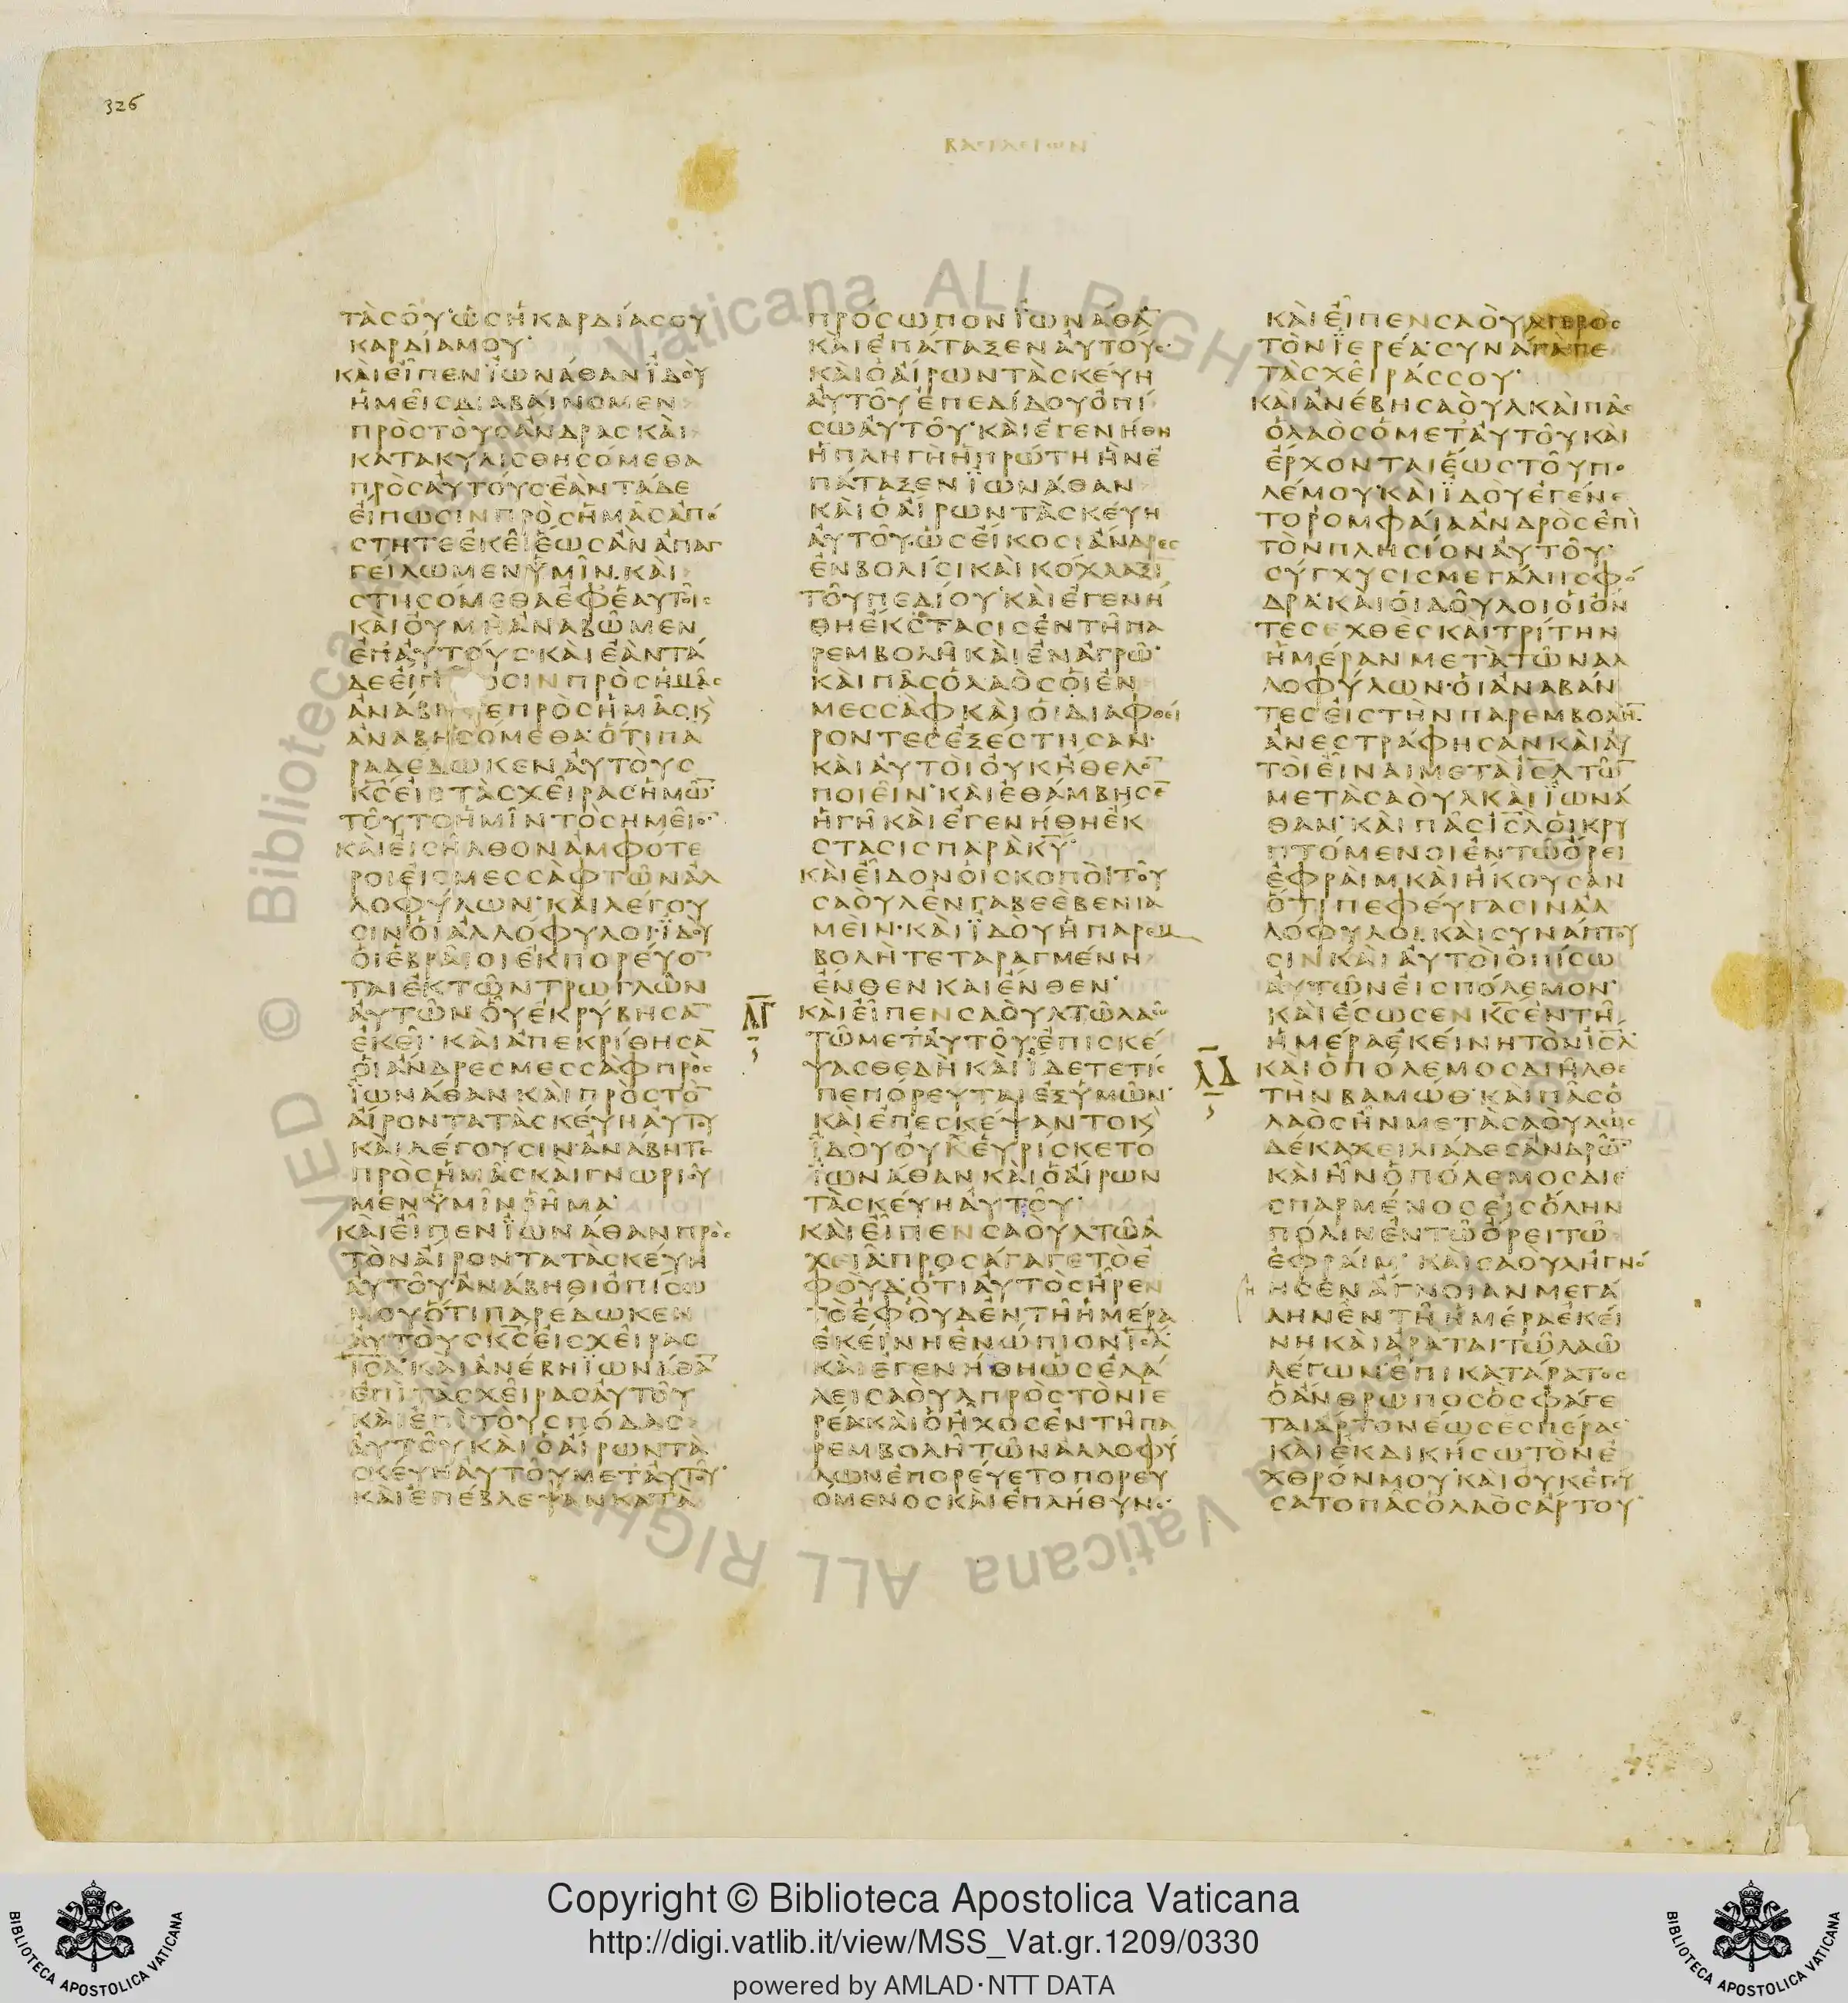 326
ΒΑΣΙΛΕΙΩΝ
ΤᾺϹΟΥ̂ ὩϹἩΚΑΡΔΊΑϹΟΥ
ΚΑΡΔΊΑΜΟΥ·
ΚΑῚΕἾΠΕΝἸΩΝΆΘΑΝἸΔΟῪ
ἩΜΕΙ͂ϹΔΙΑΒΑΊΝΟΜΕΝ
ΠΡῸϹΤΟῪϹἌΝΔΡΑϹΚΑῚ
ΚΑΤΑΚΥΛΙϹΘΗϹΌΜΕΘΑ
ΠΡῸϹΑΥ̓ΤΟΎϹ·ἘᾺΝΤΆΔΕ
ΕἼΠΩϹΙΝΠΡῸϹἩΜΑ͂ϹἈΠΌ
ϹΤΗΤΕἘΚΕΙ͂ἝΩϹἊΝἈΠΑΓ
ΓΕΊΛΩΜΕΝὙΜΙ͂Ν·ΚΑῚ
ϹΤΗϹΟΜΕΘΑἘΦΈΑΥΤΟΙ͂Ϲ
ΚΑῚΟΥ̓ΜῊἈΝΑΒΩ͂ΜΕΝ
ἘΠΑΥ̓ΤΟΎϹ·ΚΑῚἘᾺΝΤΆ
ΔΕΕἼΠ ΟϹΙΝΠΡῸϹἩΜΑ͂Ϲ
ἈΝΆΒΗ ΕΠΡῸϹἩΜΑ͂ϹΚ̀
ἈΝΑΒΗϹΌΜΕΘΑ·ὍΤΙΠΑ
ΡΑΔΈΔΩΚΕΝΑΥ̓ΤΟῪϹ
Κ̅Ϲ̅ΕἸϹΤᾺϹΧΕΙ͂ΡΑϹἩΜΩ̅·
ΤΟΥ͂ΤΟἩΜΙ͂ΝΤῸϹΗΜΕΙ͂Ο̅·
ΚΑῚΕἸϹΗ͂ΛΘΟΝἈΜΦΌΤΕ
ΡΟΙΕἸϹΜΕϹϹᾺΦΤΩ͂ΝἈΛ
ΛΟΦΎΛΩΝ·ΚΑῚΛΈΓΟΥ
ϹΙΝΟἹἈΛΛΌΦΥΛΟΙ·ἸΔΟῪ
ΟἹἙΒΡΑΙ͂ΟΙἘΚΠΟΡΕΎΟ̅
ΤΑΙἘΚΤΩ͂ΝΤΡΩΓΛΩ͂Ν
ΑΥ̓ΤΩ͂ΝΟὟἘΚΡΎΒΗϹΑ̅
ἘΚΕΙ͂·ΚΑῚἈΠΕΚΡΊΘΗϹΑ̅
ΟἹἌΝΔΡΕϹΜΕϹϹᾺΦΠΡῸϹ
ἸΩΝΆΘΑΝΚΑῚΠΡῸϹΤῸ̅
ΑἼΡΟΝΤΑΤᾺϹΚΕΎΗΑΥ̓ΤΟΥ
ΚΑῚΛΈΓΟΥϹΙΝ·ἈΝΆΒΗΤΕ
ΠΡῸϹἩΜΑ͂ϹΚΑῚΓΝΩΡΙΟΥ͂
ΜΕΝὙΜΙ͂ΝΡΗ͂ΜΑ·
ΚΑῚΕἾΠΕΝἸΩΝΆΘΑΝΠΡῸϹ
ΤῸΝΑἼΡΟΝΤΑΤᾺϹΚΕΎΗ
ΑΥ̓ΤΟΥ͂·ἈΝΆΒΗΘΙὈΠΊϹΩ
ΜΟΥὍΤΙΠΑΡΈΔΩΚΕΝ
ΑΥ̓ΤΟῪϹΚ̅Ϲ̅ΕἸϹΧΕΙ͂ΡΑϹ
Ι̅Ϲ̅Λ̅·ΚΑῚἈΝΈΒΗἸΩΝΆΘΑ̅
ἘΠῚΤᾺϹΧΕΙ͂ΡΑϹΑΥ̓ΤΟΥ͂
ΚΑῚἘΠῚΤΟῪϹΠΌΔΑϹ
ΑΥ̓ΤΟΥ͂ΚΑῚὉΑἼΡΩΝΤᾺ
ϹΚΕΎΗΑΥ̓ΤΟΥ͂ΜΕΤΑΥ̓ΤΟΥ͂·
ΚΑῚἘΠΈΒΛΕΨΑΝΚΑΤᾺ
ΠΡΌϹΩΠΟΝἸΩΝΆΘΑ̅
ΚΑῚἘΠΆΤΑΞΕΝΑΥ̓ΤΟΎϹ·
ΚΑῚὉΑἼΡΩΝΤᾺϹΚΕΎΗ
ΑΥ̓ΤΟΥ͂ἘΠΕΔΊΔΟΥὈΠΊ
ϹΩΑΥ̓ΤΟΥ͂·ΚΑῚἘΓΕΝΉΘΗ
ἩΠΛΗΓῊἩΠΡΏΤΗἫΝἘ
ΠΆΤΑΞΕΝἸΩΝΆΘΑΝ
ΚΑῚὉΑἼΡΩΝΤᾺϹΚΕΎΗ
ΑΥ̓ΤΟΥ͂·ὩϹΕἼΚΟϹΙἌΝΔΡΕϹ
ἘΝΒΟΛΊϹΙΚΑῚΚΌΧΛΑΞΙ
ΤΟΥ͂ΠΕΔΊΟΥ·ΚΑῚἘΓΕΝΉ
ΘΗἜΚϹΤΑϹΙϹἘΝΤΗ͂ΠΑ
ΡΕΜΒΟΛΗ͂ΚΑῚἘΝἈΓΡΩ͂·
ΚΑῚΠΑ͂ϹὉΛΑῸϹΟἹἘΝ
ΜΕϹϹᾺΦΚΑῚΟἹΔΙΑΦΘΕΊ
ΡΟΝΤΕϹἘΞΈϹΤΗϹΑΝ·
ΚΑῚΑΥ̓ΤΟῚΟΥ̓ΚἬΘΕΛΟ̅
ΠΟΙΕΙ͂Ν·ΚΑῚἘΘΆΜΒΗϹΕ̅
ἩΓΗ͂ΚΑῚἘΓΕΝΉΘΗἜΚ
ϹΤΑϹΙϹΠΑΡᾺΚ̅Υ̅·
ΚΑῚΕἾΔΟΝΟἹϹΚΟΠΟῚΤΟΥ͂
ϹΑΟῪΛἘΝΓΑΒΕῈΒΕΝΙΑ
ΜΕΊΝ·ΚΑῚἸΔΟῪἩΠΑΡΕΜ
ΒΟΛῊΤΕΤΑΡΑΓΜΈΝΗ
ἜΝΘΕΝΚΑῚἜΝΘΕΝ·
Λ̅Γ̅
ΚΑῚΕἾΠΕΝϹΑΟῪΛΤΩ͂ΛΑΩ͂
ΤΩ͂ΜΕΤΑΥ̓ΤΟΥ͂·ἘΠΙϹΚΈ
ΨΑϹΘΕΔῊΚΑῚἼΔΕΤΕΤΊϹ
ΠΕΠΌΡΕΥΤΑΙἘΞὙΜΩ͂Ν·
ΚΑῚἘΠΕϹΚΈΨΑΝΤΟΚ̀
ἸΔΟῪΟΥ̓ΧΕὙΡΊϹΚΕΤΟ
ἸΩΝΆΘΑΝΚΑῚὉΑἼΡΩΝ
ΤᾺϹΚΕΎΗΑΥ̓ΤΟΥ͂·
ΚΑῚΕἾΠΕΝϹΑΟῪΛΤΩ͂Ἀ
ΧΕΙᾺ·ΠΡΟϹΆΓΑΓΕΤῸἘ
ΦΟῪΔ·ὍΤΙΑΥ̓ΤῸϹἮΡΕΝ
ΤῸἘΦΟῪΔἘΝΤΗ͂ἩΜΈΡΑ
ἘΚΕΊΝΗἘΝΏΠΙΟΝΙ̅Ϲ̅Λ̅·
ΚΑῚἘΓΕΝΉΘΗὩϹἘΛΆ
ΛΕΙϹΑΟῪΛΠΡῸϹΤῸΝἹΕ
ΡΈΑΚΑῚὉἮΧΟϹἘΝΤΗ͂ΠΑ
ΡΕΜΒΟΛΗ͂ΤΩ͂ΝἈΛΛΟΦΎ
ΛΩΝἘΠΟΡΕΎΕΤΟΠΟΡΕΥ
ΌΜΕΝΟϹΚΑῚἘΠΛΉΘΥΝΕ·
ΚΑῚΕἾΠΕΝϹΑΟῪΛΠΡῸϹ
ΤῸΝἹΕΡΈΑ·ϹΥΝΆΓΑΓΕ
ΤᾺϹΧΕΙ͂ΡΆϹϹΟΥ·
ΚΑῚἈΝΈΒΗϹΑΟῪΛΚΑῚΠΑ͂Ϲ
ὉΛΑῸϹὉΜΕΤΑΥ̓ΤΟΥ͂ΚΑῚ
ἜΡΧΟΝΤΑΙἝΩϹΤΟΥ͂ΠΟ
ΛΈΜΟΥ·ΚΑῚἸΔΟῪἘΓΈΝΕ
ΤΟΡΟΜΦΑΊΑἈΝΔΡῸϹἘΠῚ
ΤῸΝΠΛΗϹΊΟΝΑΥ̓ΤΟΥ͂·
ϹΎΓΧΥϹΙϹΜΕΓΆΛΗϹΦΌ
ΔΡΑ·ΚΑῚΟἹΔΟΥ͂ΛΟΙΟἹὌΝ
ΤΕϹΕΧΘῈϹΚΑῚΤΡΊΤΗΝ
ἩΜΈΡΑΝΜΕΤᾺΤΩ͂ΝἈΛ
ΛΟΦΎΛΩΝ·ΟἹἈΝΑΒΆΝ
ΤΕϹΕἸϹΤῊΝΠΑΡΕΜΒΟΛῊ̅·
ἈΝΕϹΤΡΆΦΗϹΑΝΚΑῚΑΥ̓
ΤΟῚΕἾΝΑΙΜΕΤᾺΙ̅Ϲ̅Λ̅ΤΩ͂̅
ΜΕΤᾺϹΑΟῪΛΚΑῚἸΩΝΆ
ΘΑΝ·ΚΑῚΠΑ͂ϹΙ̅Ϲ̅Λ̅ΟἹΚΡΥ
ΠΤΌΜΕΝΟΙἘΝΤΩ͂ὌΡΕΙ
ἘΦΡΑΊΜΚΑῚἬΚΟΥϹΑΝ
ὍΤΙΠΕΦΕΎΓΑϹΙΝἈΛ
ΛΌΦΥΛΟΙ·ΚΑῚϹΥΝΆΠΤΟΥ
ϹΙΝΚΑῚΑΥ̓ΤΟῚὈΠΊϹΩ
ΑΥ̓ΤΩ͂ΝΕἸϹΠΌΛΕΜΟΝ·
ΚΑῚἜϹΩϹΕΝΚ̅Ϲ̅ἘΝΤΗ͂
ἩΜΈΡΑἘΚΕΊΝΗΤῸΝΙ̅Ϲ̅Λ̅·
Λ̅Δ̅
ΚΑῚὉΠΌΛΕΜΟϹΔΙΗ͂ΛΘΕ
ΤῊΝΒΑΜΏΘ·ΚΑῚΠΑ͂ϹὉ
ΛΑῸϹἮΝΜΕΤᾺϹΑΟῪΛὩϹ
ΔΈΚΑΧΕΙΛΙΆΔΕϹἈΝΔΡΩ͂̅·
ΚΑῚἮΝὉΠΌΛΕΜΟϹΔΙΕ
ϹΠΑΡΜΈΝΟϹΕἸϹὍΛΗΝ
ΠΌΛΙΝἘΝΤΩ͂ὌΡΕΙΤΩ͂
ἘΦΡΑΊΜ·ΚΑῚϹΑΟῪΛἨΓΝΌ
ΗϹΕΝἌΓΝΟΙΑΝΜΕΓΆ
ΛΗΝἘΝΤΗ͂ἩΜΈΡΑἘΚΕΊ
ΝΗΚΑῚἈΡΑΤΑΙΤΩ͂ΛΑΩ͂
ΛΈΓΩΝ·ἘΠΙΚΑΤΆΡΑΤΟϹ
ὉἌΝΘΡΩΠΟϹὋϹΦΆΓΕ
ΤΑΙἌΡΤΟΝἝΩϹἙϹΠΈΡΑϹ
ΚΑῚἘΚΔΙΚΉϹΩΤῸΝἘ
ΧΘΡΌΝΜΟΥ·ΚΑῚΟΥ̓ΚἘΓΕΎ
ϹΑΤΟΠΑ͂ϹὉΛΑῸϹἌΡΤΟΥ·
Biblioteca Apostolica Vaticana ALL RIGHTS RESERVED ©
Copyright © Biblioteca Apostolica Vaticana
http://digi.vatlib.it/view/MSS_Vat.gr.1209/0330
powered by AMLAD·NTT DATA
BIBLIOTECA APOSTOLICA VATICANA
BIBLIOTECA APOSTOLICA VATICANA